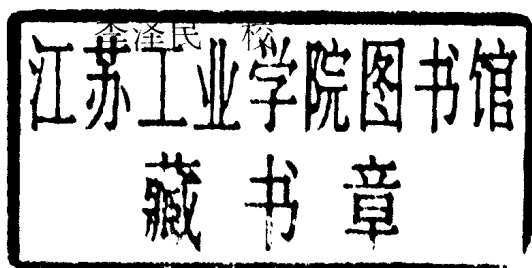 李泽民 校
江苏工业学院图书馆
藏书章